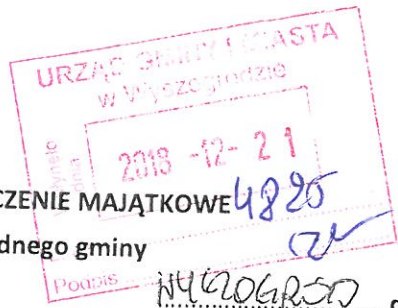 URZĄD GMINY I MIASTA
w Wyszogrodzie
Wpłynęło
dnia
2018 -12- 2 1
CZENIE MAJĄTKOWE 4825
dnego gminy
Podpis
WYSZOGRÓD